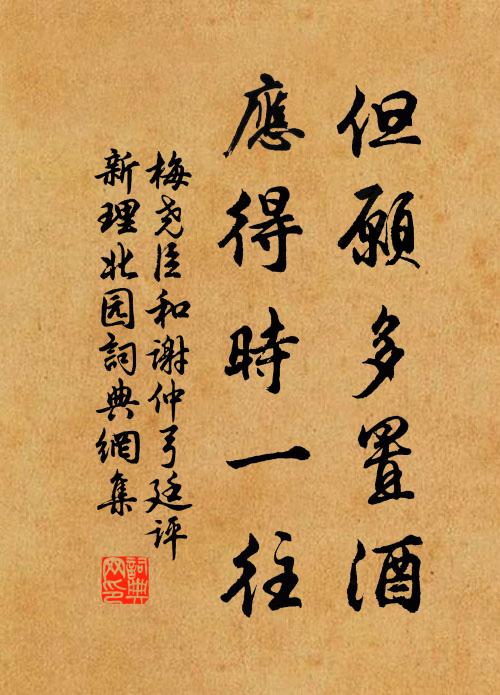 但願多置酒
應得時一往
梅尧臣和谢仲弓廷评
新理北园詞典網集
詞典网印